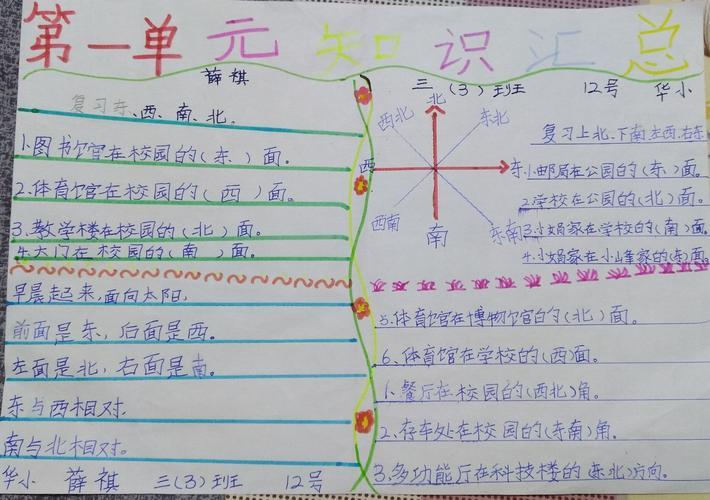 第一单元知识汇总
薛祺 三(3)班 12号 华小
复习东、西、南、北。
1.图书馆在校园的(东)面。
2.体育馆在校园的(西)面。
3.教学楼在校园的(北)面。
4.大门在校园的(南)面。
早晨起来,面向太阳,
前面是东,后面是西。
左面是北,右面是南。
东与西相对,
南与北相对。
华小 薛祺 三(3)班 12号
北
西北
东北
西
东
西南
南
东南
复习上北、下南左西、右东
1.邮局在公园的(东)面。
2.学校在公园的(北)面。
3.小娟家在学校的(南)面。
4.小娟家在小隼家的(东)面。
5.体育馆在博物馆的(北)面。
6.体育馆在学校的(西)面。
1.餐厅在校园的(西北)角。
2.存车处在校园的(东南)角。
3.多功能厅在科技楼的(东北)方向。